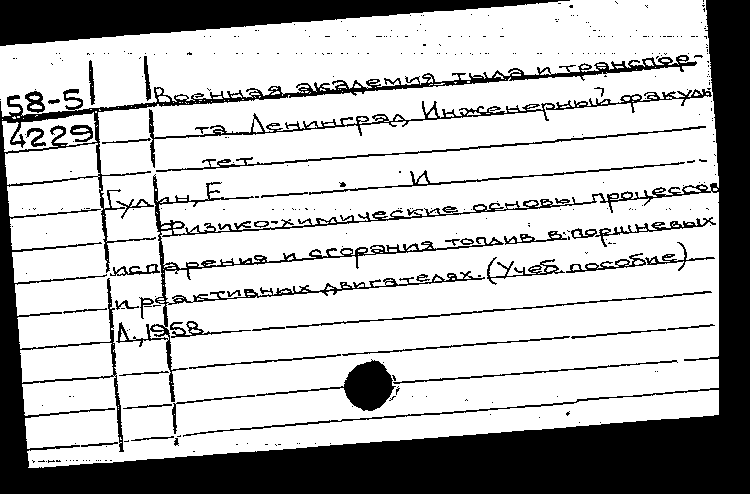 58-5 Военная академия тыла и транспор-
4229 та Ленинград, Инженерный факуль
тет.
Гулин, Е. И
Физико-химические основы процессов
испарения и сгорания топлив в поршневых
и реактивных двигателях. (Учеб. пособие)
Л., 1958